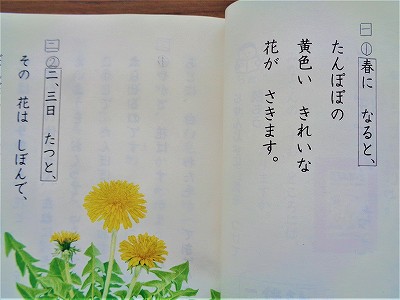 一 ① 春に なると、
たんぽぽの
黄色い きれいな
花が さきます。
二 ② 二、三日 たつと、
その 花は しぼんで、